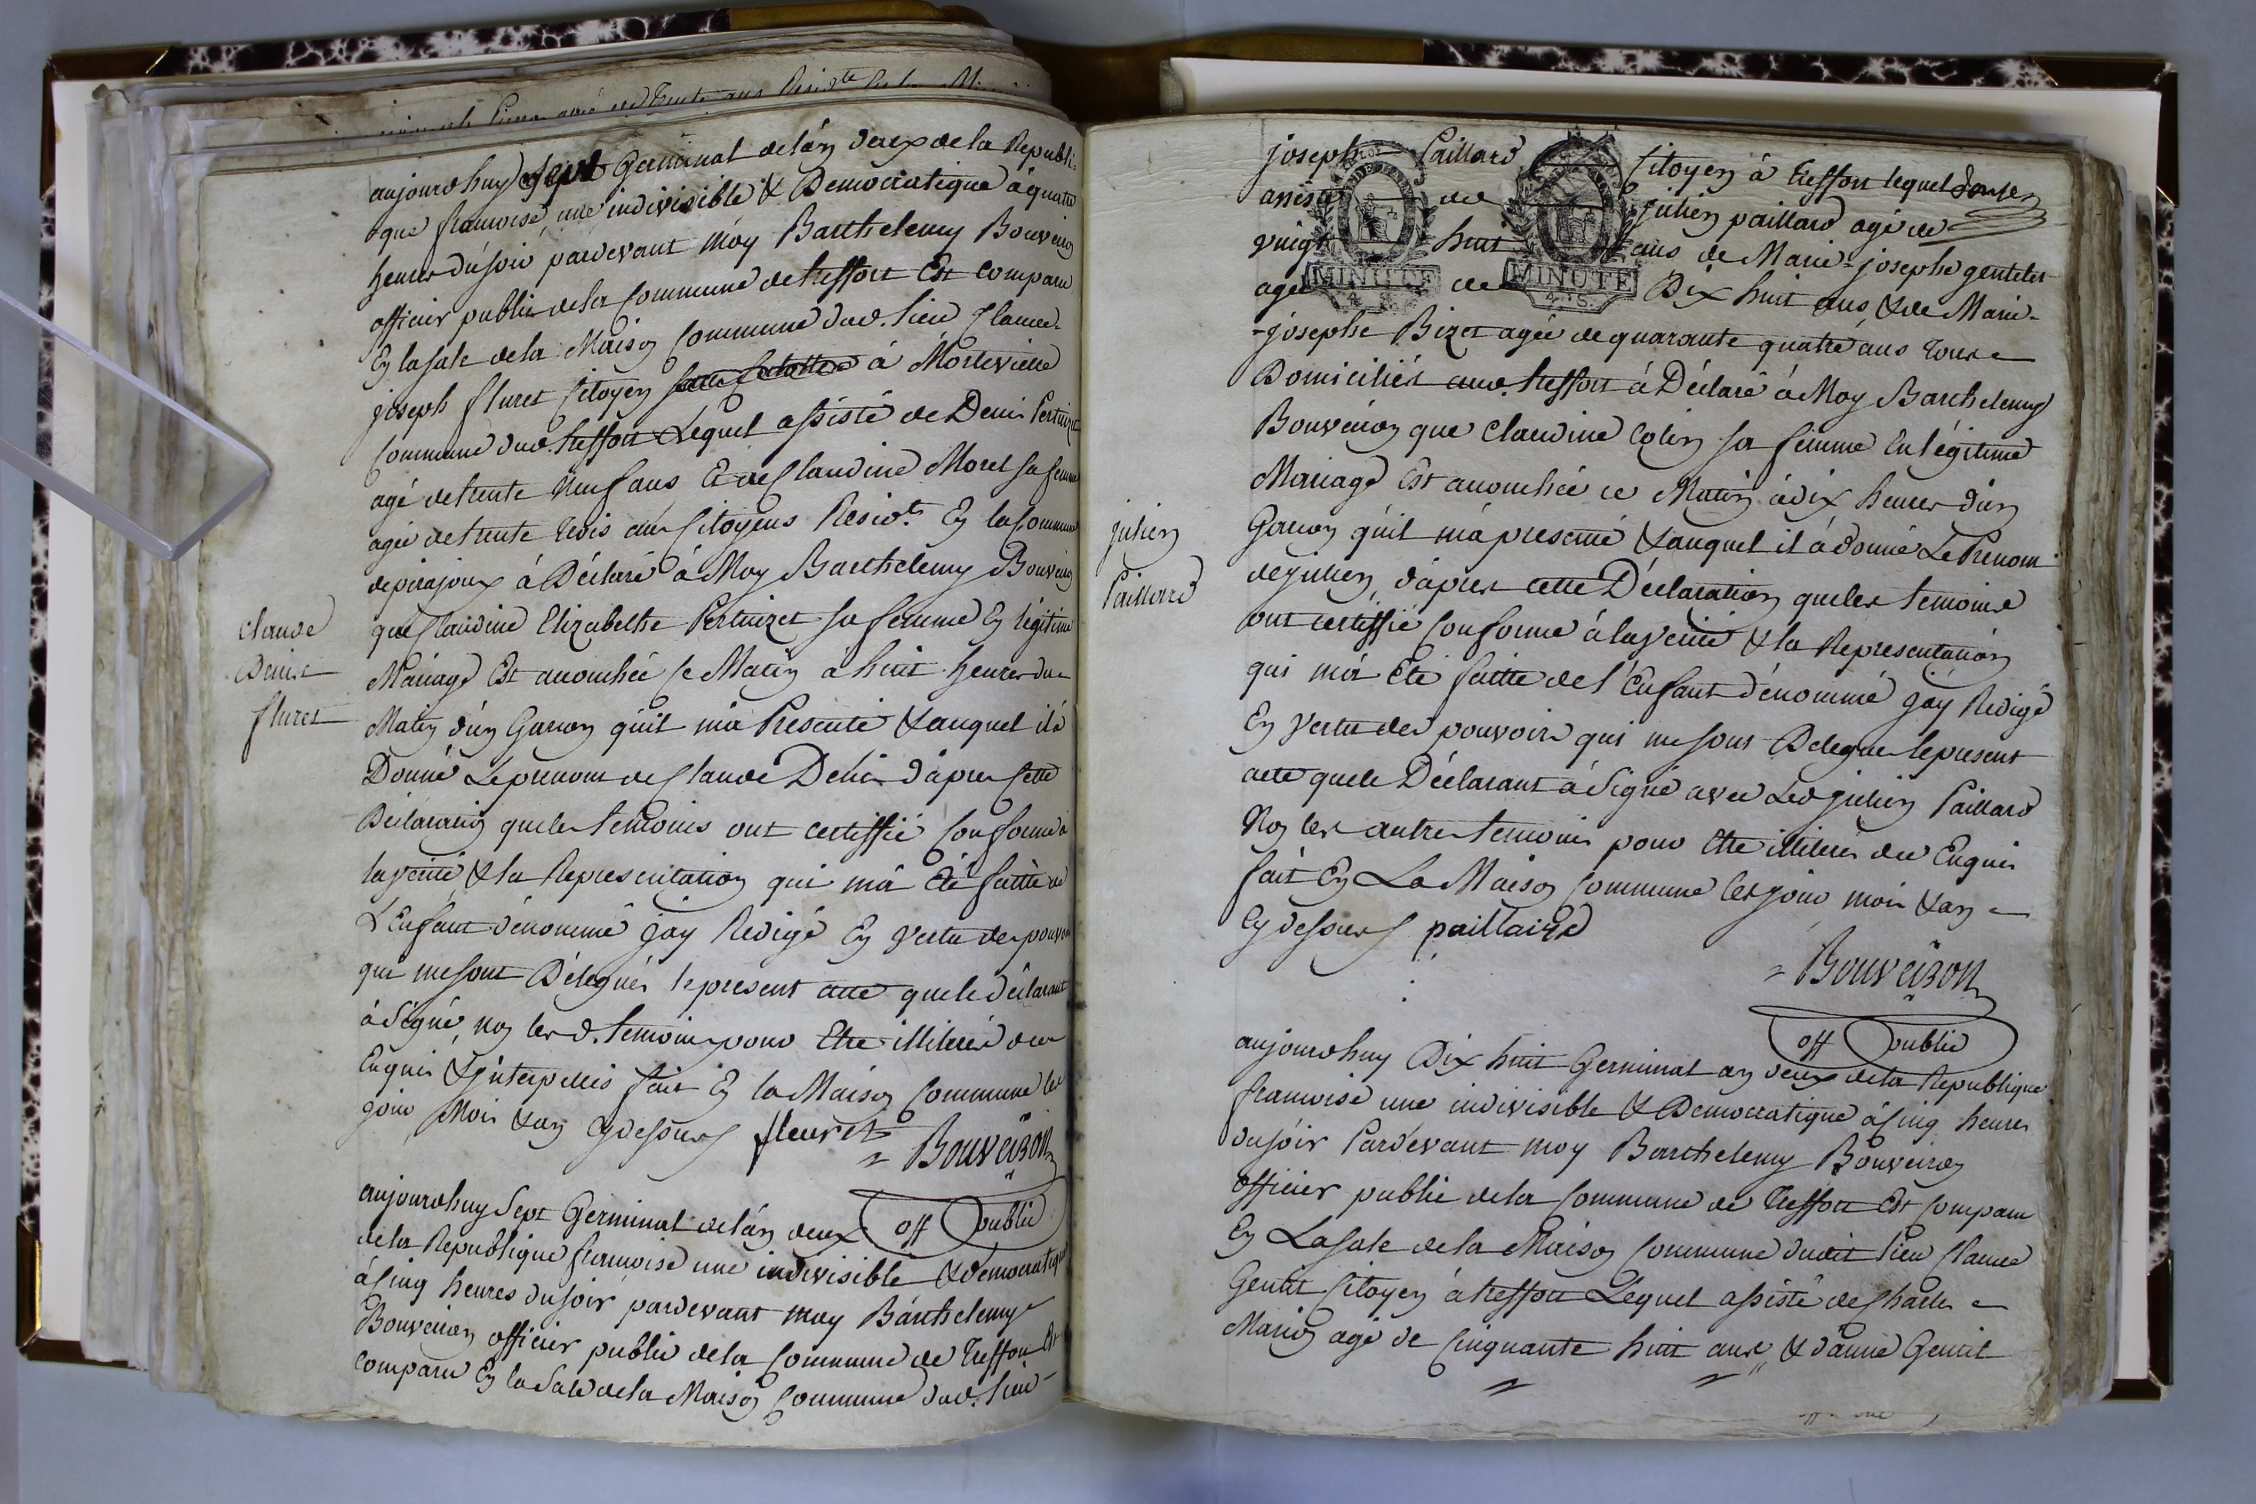 aujourdhuy sept Germinal de l'an deux de la Republi-
que françoise, une indivisible & Democratique à quatre
heures du soir pardevant moy Barthelemy Bouveiron
officier public de la Commune de treffort Est Comparu
En la sale de la Maison Commune dud. lieu Claude-
joseph fluret Citoyen à Morteville
Commune dud. treffort Lequel assisté de Denis Pertuizet
agé de trente neuf ans Et de Claudine Morel sa femme
agée de trente trois ans Citoyens Resid.ts En la Commune
de pirajoux à Déclaré à Moy Barthelemy Bouveiron
que Claudine Elizabethe Pertuizet sa femme En légitime
Mariage Est accouchée ce Matin à huit heures du
Matin d'un Garçon qu'il m'a Presenté & auquel il à
Donné Le prenom de Claude Denis d'apres cette
Déclaration que les temoins ont certiffié Conforme à
la verité & la Representation qui m'a Eté faitte de
L'Enfant dénommé j'ay Redigé En vertu des pouvoirs
qui me sont Délegués le present acte que le déclarant
à Signé, non les d. temoins pour Etre illiterés de ce
Enquis & interpellés fait En la Maison Commune les
jour Mois & an Cy dessus fleuret
Bouveiron
off public
claude
Denis
fluret
aujourdhuy Sept Germinal de l'an deux
de la Republique françoise une indivisible & democratique
à Cinq heures du soir pardevant moy Barthelemy
Bouveiron officier public de la Commune de treffort Est
comparu En la Sale de la Maison Commune dud. lieu-
joseph Paillard Citoyen à treffort lequel
assisté de julien paillard agé de
vingt huit ans de Marie-josephe gentelet
agée de Dix huit ans & de Marie-
-josephe Bizet agée de quarante quatre ans tous
Domiciliés aud. treffort à Déclaré à Moy Barthelemy
Bouveiron que Claudine Colin sa femme En légitime
Mariage Est accouchée ce Matin à dix heures d'un
Garçon qu'il m'a presenté & auquel il à donné Le Prenom
de julien, d'apres cette Déclaration que les temoins
ont certiffié Conforme à la verité & la Representation
qui m'a Eté faitte de l'Enfant dénommé j'ay Redigé
En vertu des pouvoirs qui me sont Delegués le present
acte que le Déclarant à Signé avec Led julien Paillard
Non les autres temoins pour Etre illiterés de ce Enquis
fait En La Maison Commune les jour mois & an
Cy dessus paillaird
Bouveiron
off public
MINUTE
4.S.
MINUTE
4.S.
julien
Paillard
aujourdhuy Dix huit Germinal an deux de la Republique
françoise une indivisible & Democratique à Cinq heures
du soir Pardevant moy Barthelemy Bouveiron
officier public de la Commune de treffort Est Comparu
En La sale de la Maison Commune dudit lieu Claude
Gentit Citoyen à treffort Lequel assisté de Charles
Marion agé de Cinquante huit ans, & d'anne Gentit